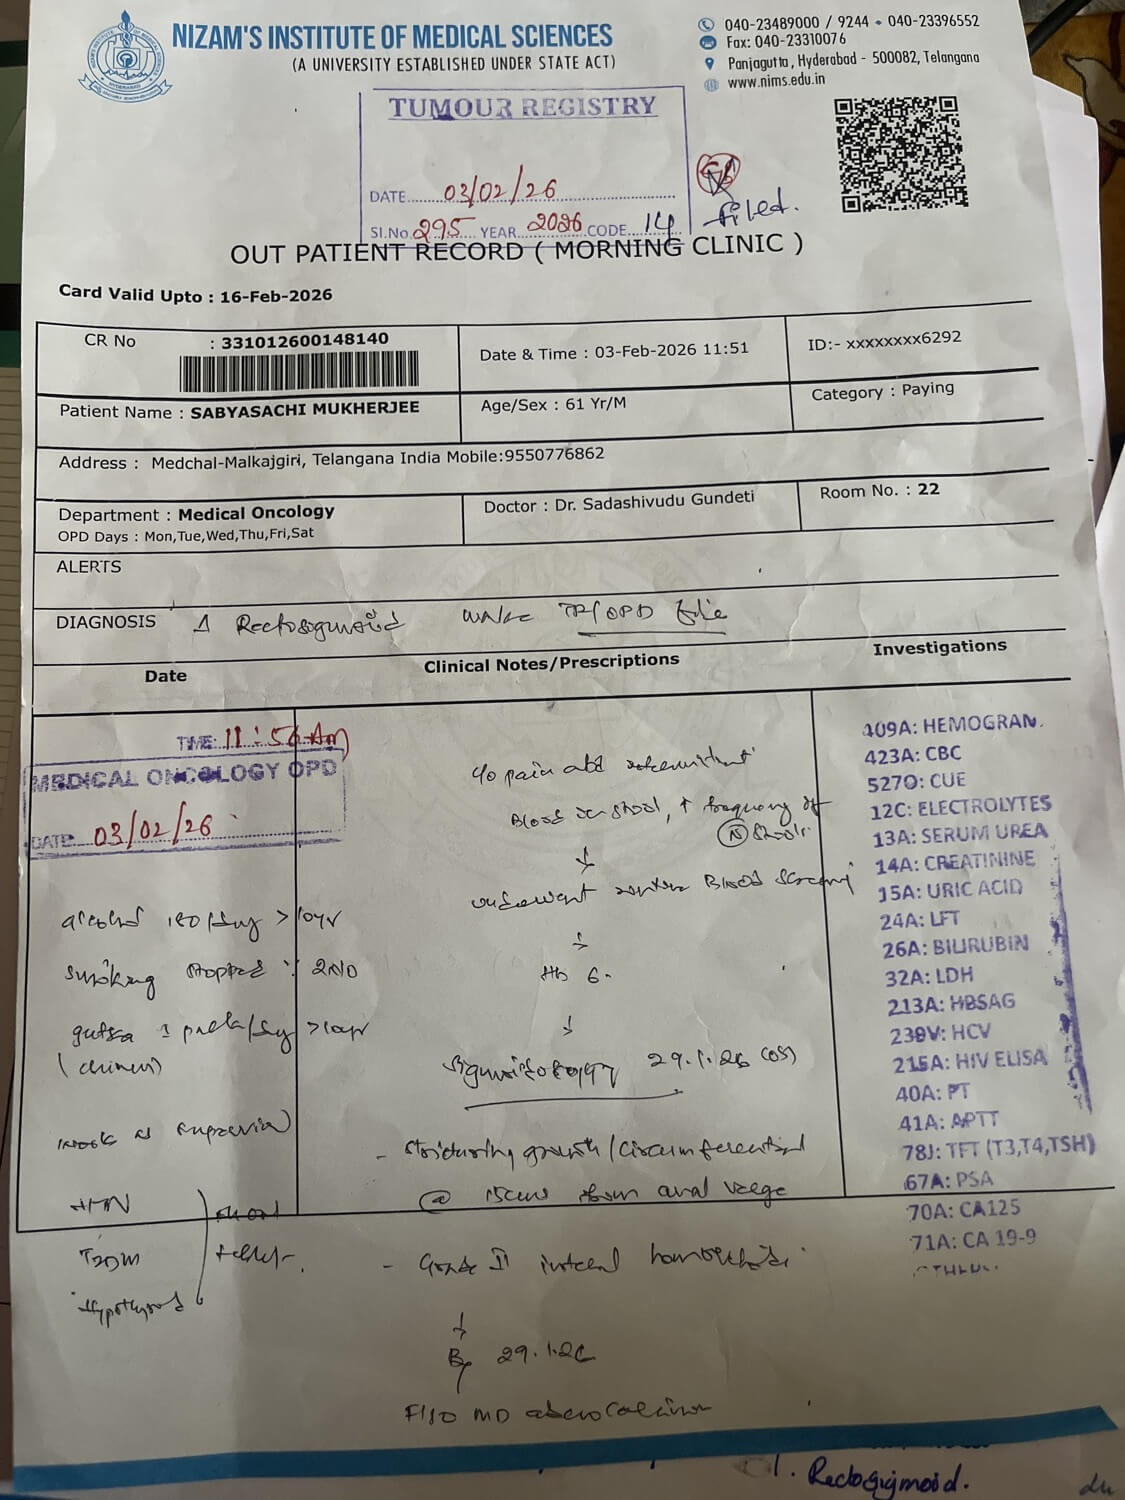 NIZAM'S INSTITUTE OF MEDICAL SCIENCES
(A UNIVERSITY ESTABLISHED UNDER STATE ACT)
040-23489000 / 9244 • 040-23396552
Fax: 040-23310076
Panjagutta, Hyderabad - 500082, Telangana
www.nims.edu.in
TUMOUR REGISTRY
DATE 03/02/26
SI.No. 295 YEAR 2026 CODE 14
filed.
OUT PATIENT RECORD ( MORNING CLINIC )
Card Valid Upto : 16-Feb-2026
CR No : 331012600148140
Date & Time : 03-Feb-2026 11:51
ID:- xxxxxxxx6292
Patient Name : SABYASACHI MUKHERJEE
Age/Sex : 61 Yr/M
Category : Paying
Address : Medchal-Malkajgiri, Telangana India Mobile:9550776862
Department : Medical Oncology
OPD Days : Mon,Tue,Wed,Thu,Fri,Sat
Doctor : Dr. Sadashivudu Gundeti
Room No. : 22
ALERTS
DIAGNOSIS Rectosigmoid make OPD file
Date
Clinical Notes/Prescriptions
Investigations
TIME: 11:56 Am
MEDICAL ONCOLOGY OPD
DATE 03/02/26
alcohol 180/day >10yr
smoking stopped
gutka 1 /day >10yr
HTN
T2DM
Hypothyroid
c/o pain abd intermittent
Blood in stool, ↑ frequency of
(N) stools
↓
underwent Blood screening
↓
Hb 6.
↓
Sigmoidoscopy 29.1.26 (OS)
- stricturing growth/circumferential
@ 15cm from anal verge
- Grade II internal hemorrhoids
↓
Bx 29.1.26
F/S/O MD adenocarcinoma
409A: HEMOGRAM.
423A: CBC
527O: CUE
12C: ELECTROLYTES
13A: SERUM UREA
14A: CREATININE
15A: URIC ACID
24A: LFT
26A: BILIRUBIN
32A: LDH
213A: HBSAG
239V: HCV
215A: HIV ELISA
40A: PT
41A: APTT
78J: TFT (T3,T4,TSH)
67A: PSA
70A: CA125
71A: CA 19-9
1. Rectosigmoid.